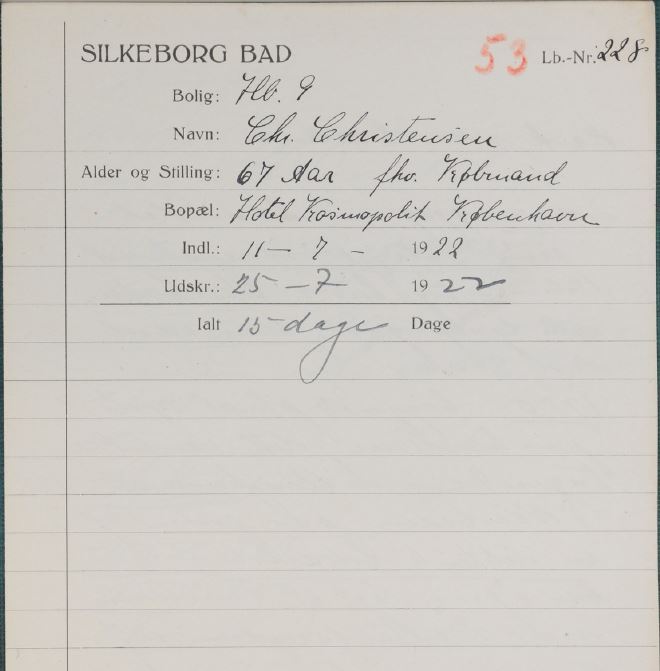 SILKEBORG BAD 53 Lb.-Nr. 228
Bolig: Hb. 9
Navn: Chr. Christensen
Alder og Stilling: 67 Aar fhv. Købmand
Bopæl: Hotel Kosmopolit København
Indl.: 11 - 7 - 1922
Udskr.: 25 - 7 1922
Ialt 15 dage Dage